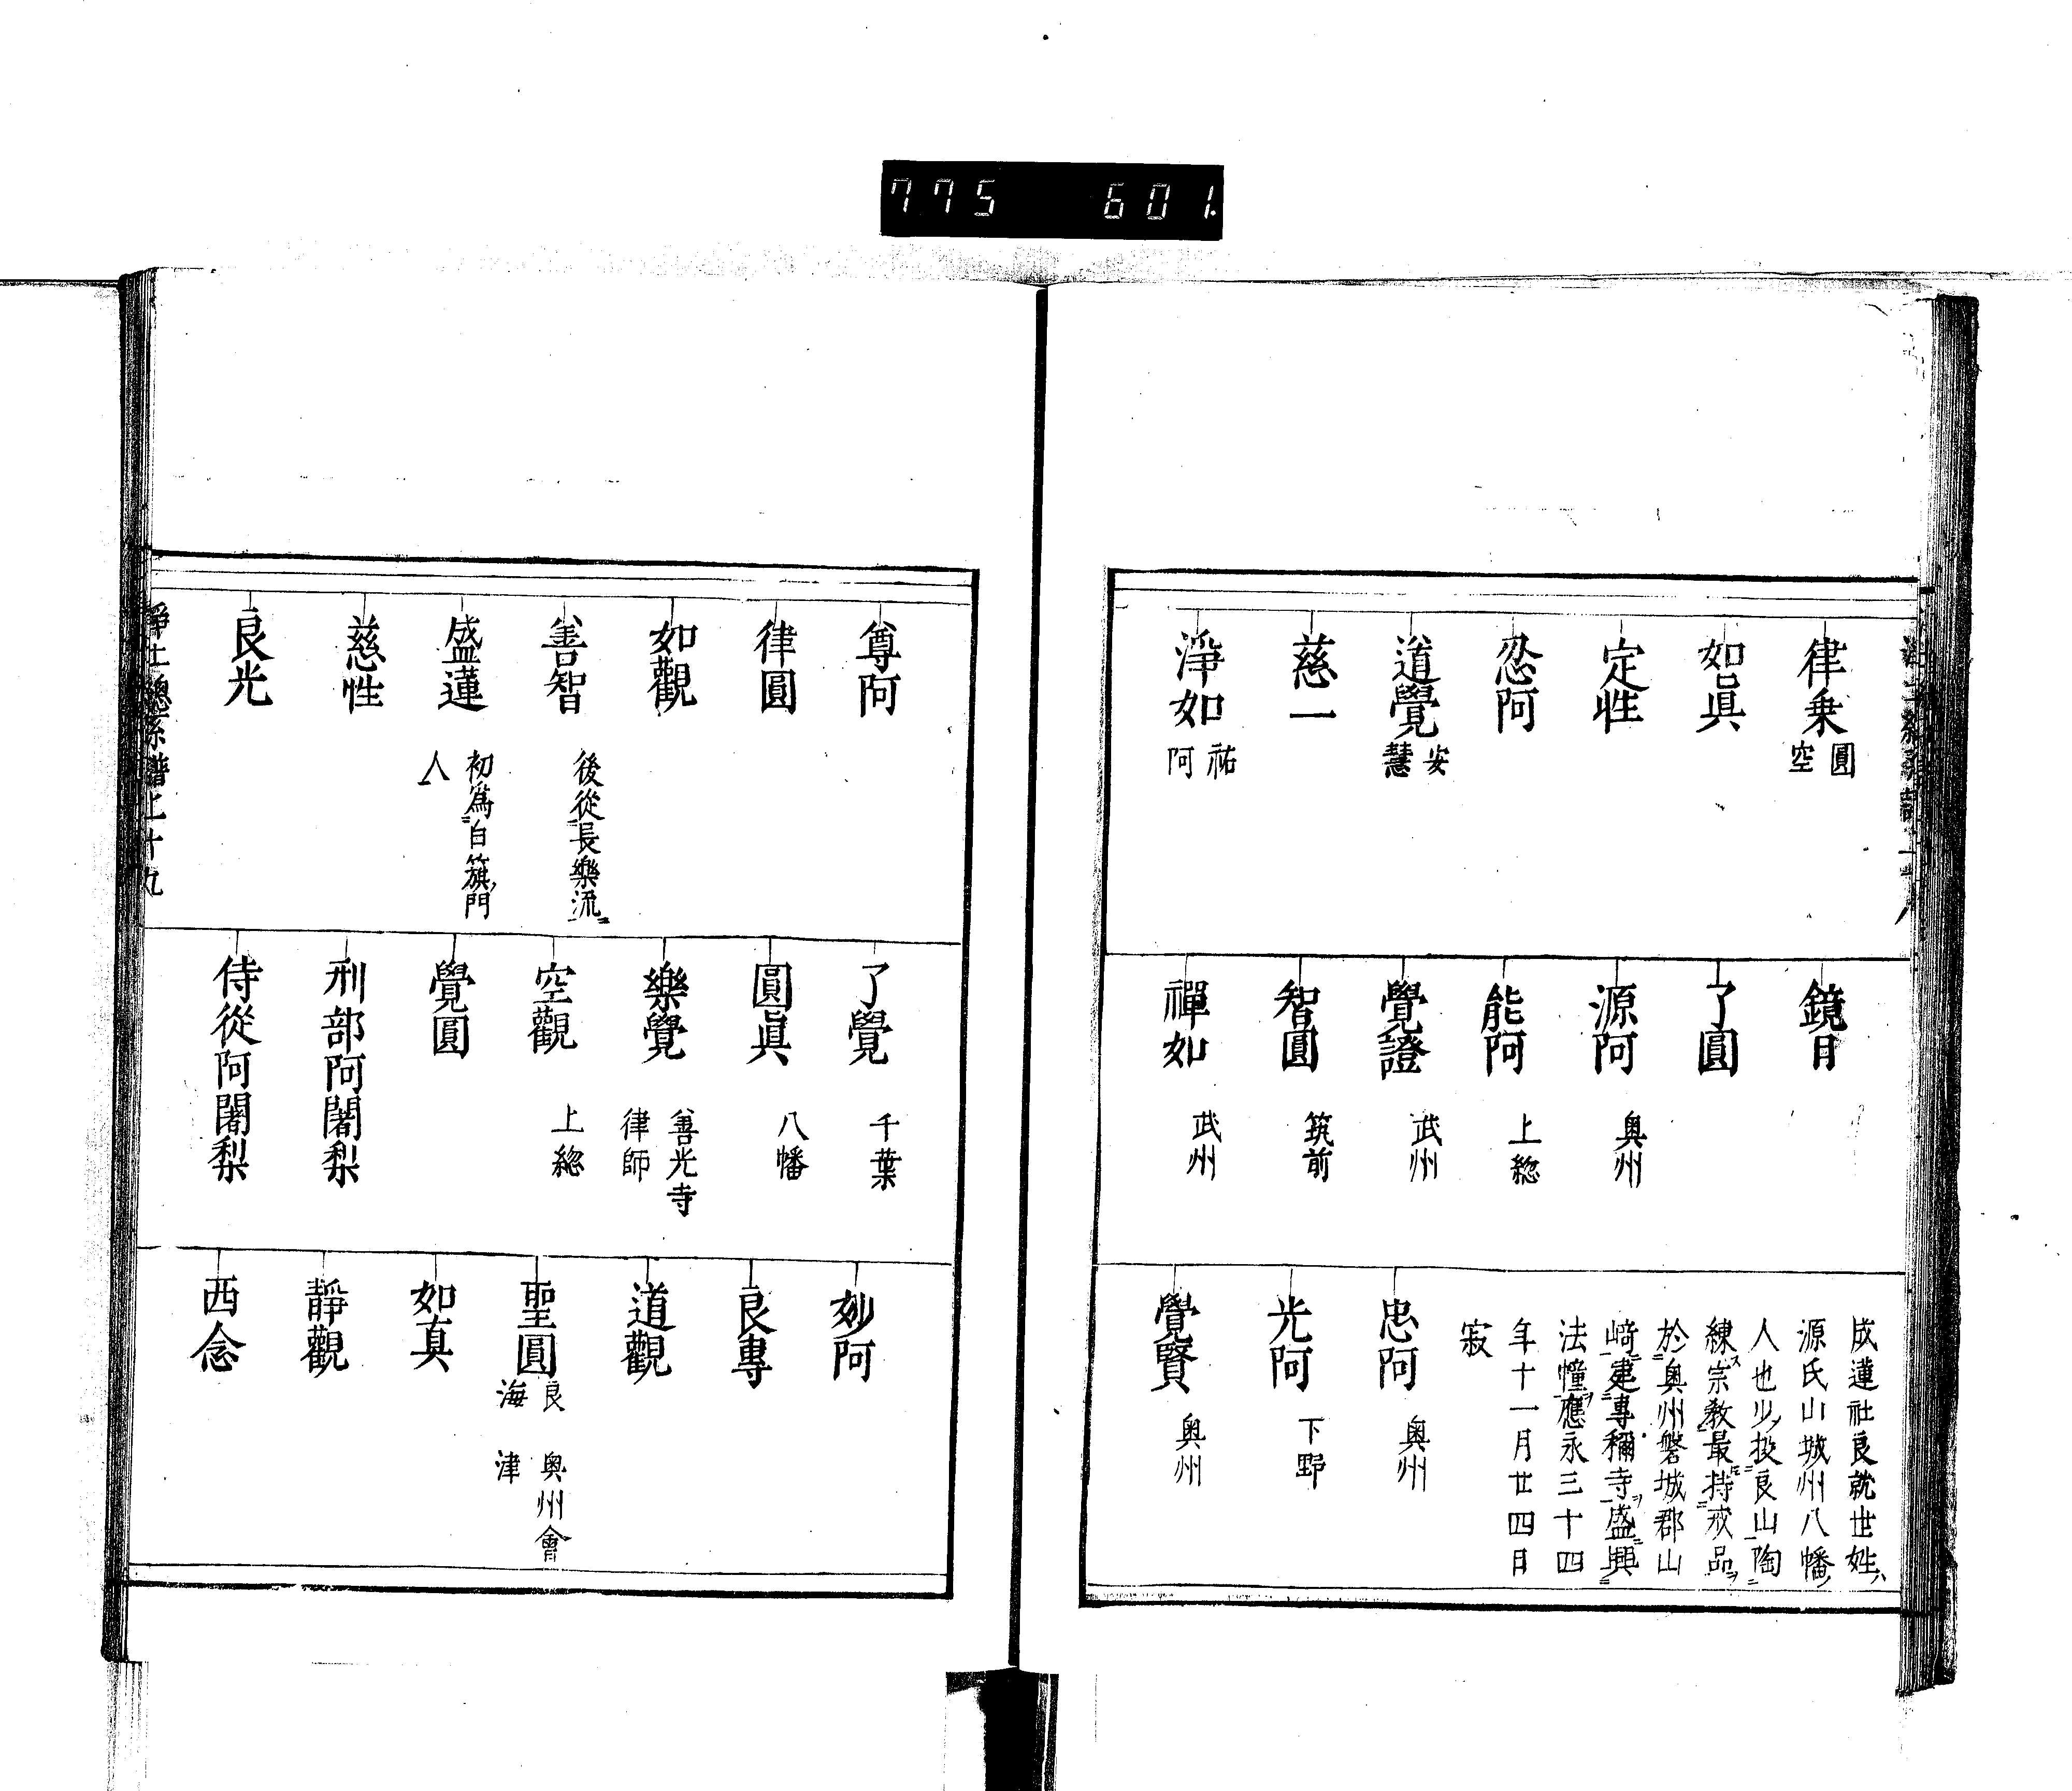 775 601
律乗 圓空
如眞
定性
忍阿
道覺 安慧
慈一
淨如 祐阿
鏡日
了圓
源阿 奥州
能阿 上総
覺證 武州
智圓 筑前
禪如 武州
成蓮社良就世姓ハ
源氏山城州八幡ノ
人也少ノ投良山陶
練宗教最持戒品
於奥州磐城郡山
﨑建專稱寺盛興
法幢應永三十四
年十一月廿四日
寂
忠阿 奥州
光阿 下野
覺賢 奥州
尊阿
律圓
如觀
善智 後從長樂流
盛蓮 初爲白籏門
人
慈性
良光
了覺 千葉
圓眞 八幡
樂覺 善光寺
律師
空觀 上総
覺圓
刑部阿闍梨
侍從阿闍梨
妙阿
良專
道觀
聖圓 良海 奥州會
津
如真
靜觀
西念
淨土總系譜上十九